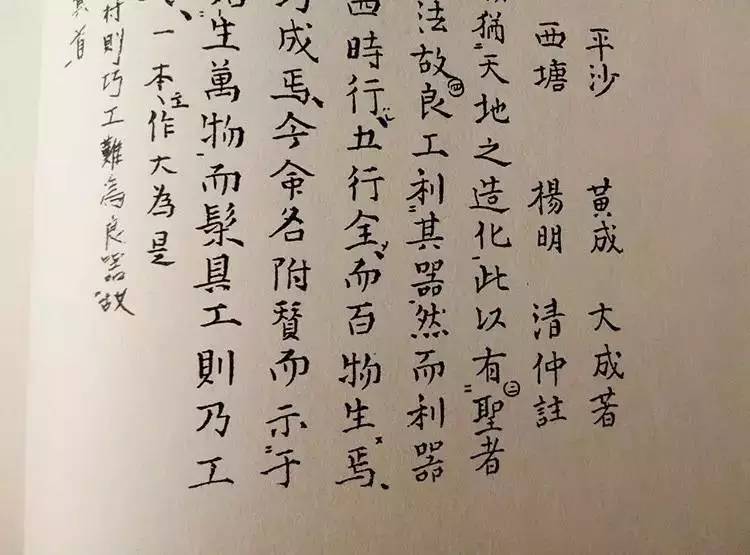 平沙 黃成 大成著
西塘 楊明 清仲註
猶天地之造化此以有㊁聖者
法故㊃良工利其器然而利器
四時行五行全而百物生焉、
成焉、今命名附贊而示于
生萬物而髹具工則乃工
一本作大為是
材則巧工難為良器故
其首